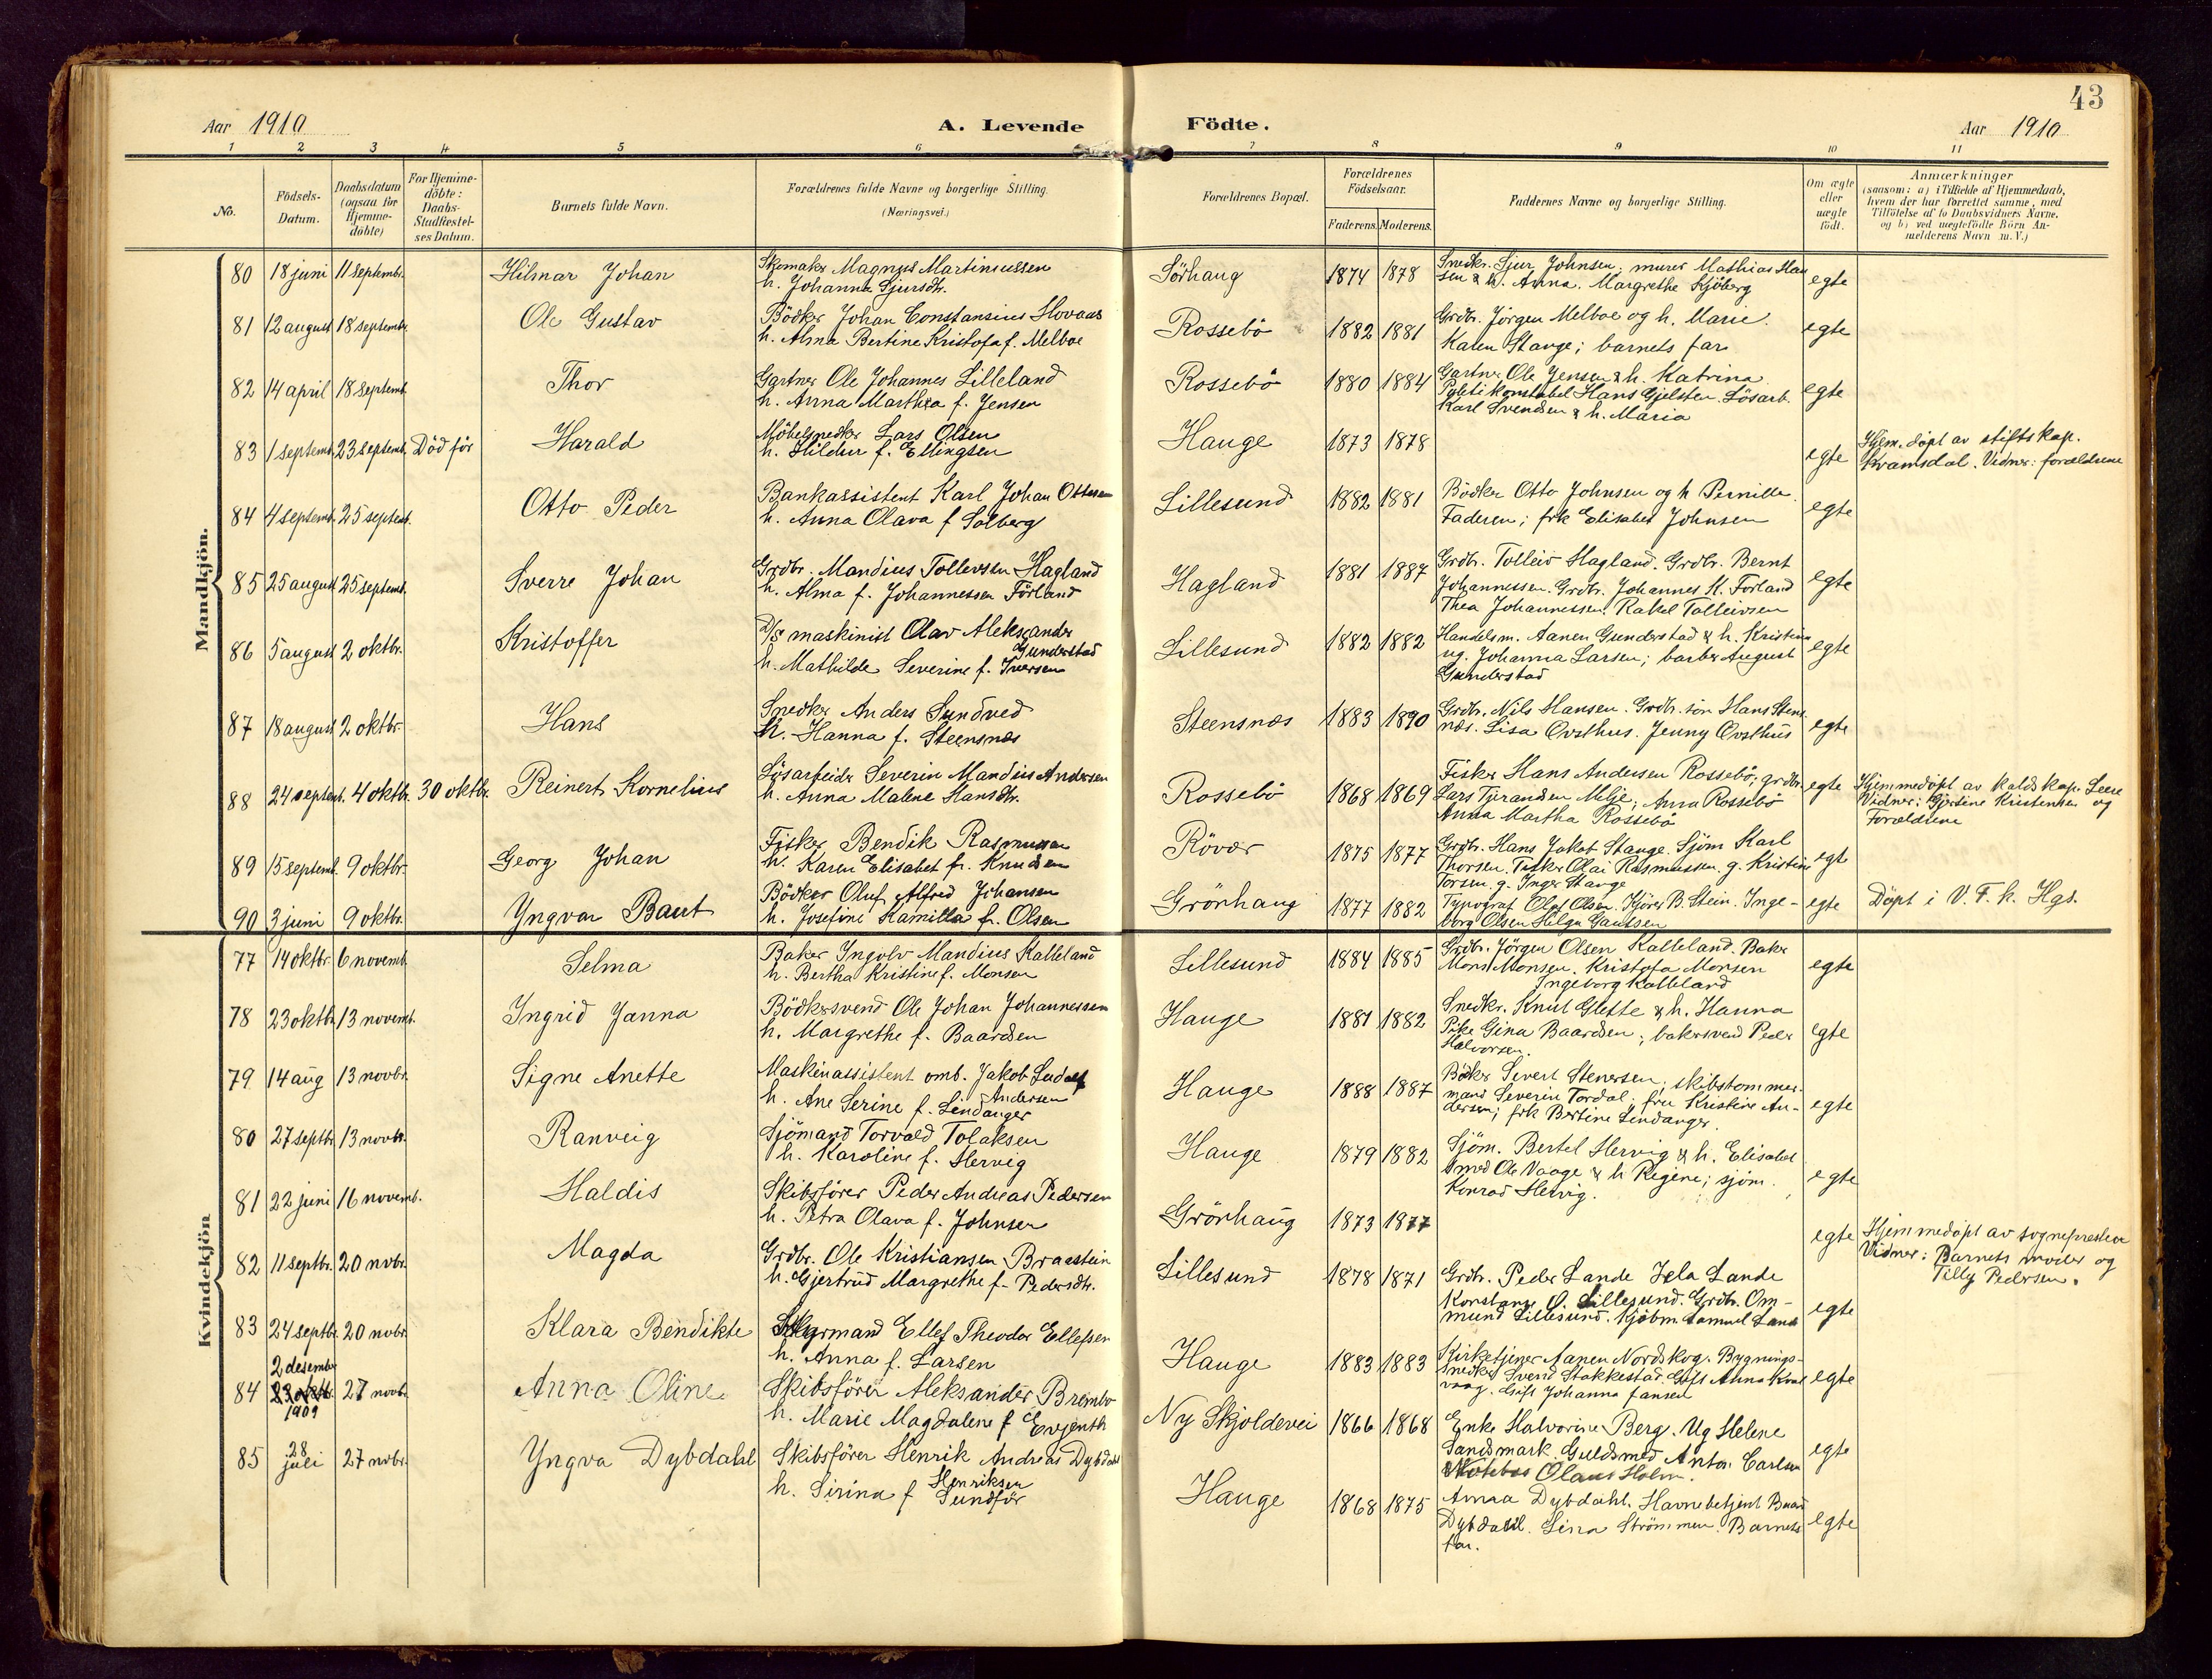 43
Aar 1910
A. Levende Födte.
Aar 1910
1 2 3 4 5 6 7 8 9 10 11
No.
Födsels-Datum.
Daabsdatum (ogsaa for Hjemme-döbte)
For Hjemme-döbte: Daabs-Stadfæstel-ses Datum.
Barnets fulde Navn.
Forældrenes fulde Navne og borgerlige Stilling.
(Næringsvei.)
Forældrenes Bopæl.
Forældrenes Födselsaar.
Faderens. Moderens.
Faddernes Navne og borgerlige Stilling.
Om ægte eller uægte födt.
Anmærkninger
(saasom: a) i Tilfælde af Hjemmedaab, hvem der har forrettet samme, med Tilföielse af to Daabsvidners Navne, og b) ved uægtefödte Börn An-melderens Navn m.V.)
Mandkjön.
80 18 juni 11 septembr. Hilmar Johan
Skomaker Magnus Martinussen
h. Johanna Sjursdtr.
Sörhaug 1874 1878
Snedkr. Sjur Johnsen; murer Mathias Han
sen & h. Anna. Margrethe Sjöberg
egte
81 12 august 18 septembr. Ole Gustav
Bödker Johan Constansius Hovaas
h. Alma Bertine Kristofa f. Melboe
Rossebö 1882 1881
Grdbr. Jörgen Melboe og h. Marie.
Karen Stange; barnets far
egte
82 14 april 18 septemb. Thor
Gartner Ole Johannes Lilleland
h. Anna Marthea f. Jensen
Rossebö 1880 1884
Gartner Ole Jensen & h. Katrina
Politikonstabel Hans Gjelsten. Lösarb.
Karl Svendsen & h. Maria
egte
83 1 septemb. 23 septemb. Död för Harald
Möbelsnedker Lars Olsen
h. Hildur f. Ellingsen
Hauge 1873 1878
egte
Hjem.döpt av stiftskap.
Kramsdal. Vidner: forældrene
84 4 septemb. 25 septemb. Otto Peder
Bankassistent Karl Johan Ottesen
h. Anna Olava f Solberg
Lillesund 1882 1881
Bödker Otto Johnsen og h Pernille.
Faderen; frk Elisabet Johnsen
egte
85 25 august 25 septemb. Sverre Johan
Grdbr. Mandius Tollevsen Hagland
h. Alma f. Johannessen Förland
Hagland 1881 1887
Grdbr. Tolleiv Hagland. Grdbr. Bernt
Johannessen. Grdbr. Johannes H. Forland
Thea Johannessen. Rakel Tolleivsen
egte
86 5 august 2 oktbr. Kristoffer
D/S maskinist Olav Aleksander
Gunderstad
h. Mathilde Severine f. Iversen
Lillesund 1882 1882
Handelsm. Aanen Gunderstad & h. Kristina
ug. Johanna Larsen; barber August
Gunderstad
egte
87 18 august 2 oktbr. Hans
Snedker Anders Sundved
h. Hanna f. Steensnæs
Steensnæs 1883 1890
Grdbr. Nils Hansen. Grdbr. sön Hans Stens
næs. Lisa Østhus. Jenny Østhus
egte
88 24 septemt. 4 oktbr. 30 oktbr. Reinert Kornelius
Lösarbeider Severin Mandius Andersen
h. Anna Malene Hansdtr.
Rossebö 1868 1869
Fisker Hans Andersen Rossebö; grdbr.
Lars Tjerandsen Milje; Anna Rossebö
Anna Martha Rossebö
egte
Hjemmedöpt av kaldskap.
Vidner: Gjertine Kristensen og
Forældrene
89 15 septemb. 9 oktbr. Georg Johan
Fisker Bendik Rasmussen
h. Karen Elisabet f. Knudsen
Rövær 1875 1877
Grdbr. Hans Jakob Stange. Sjöm Karl
Thorsen. Fisker Olai Rasmussen. g. Kristine
Torsen. g. Inger Stange
egte
90 3 juni 9 oktbr. Yngvar Baut
Bödker Oluf Alfred Johansen
h. Josefine Kamilla f. Olsen
Grönhaug 1877 1882
Typograf Olaf Olsen. Kjörer B. Stein. Inge-
borg Olsen Helga Gautsen
egte
Döpt i V. F. k. Hgs.
Kvindekjön
77 14 oktbr. 6 novemb. Selma
Baker Ingolv Mandius Kalleland
h. Bertha Kristine f. Monsen
Lillesund 1884 1885
Grdbr. Jörgen Olsen Kalleland. Baker
Mons Monsen. Kristofa Monsen
Ingeborg Kalleland
egte
78 23 oktb. 13 novemt. Ingrid Janna
Bödkersvend Ole Johan Johannessen
h. Margrethe f. Baardsen
Hauge 1881 1882
Snedkr. Knut Glette & h. Hanna
Pike Gina Baardsen; bakersvend Peder
Halvorsen.
egte
79 14 aug 13 novbr. Signe Anette
Maskinassistent omb. Jakob Ludolf
Andersen
h. Ane Serine f. Lindanger
Hauge 1888 1887
Böker Sivert Stenersen; skibstømmer-
mand Severin Tordal; fru Kristine An-
dersen; frk Bertine Lindanger.
egte
80 27 septbr 13 novbr. Ranveig
Sjömand Torvald Tolaksen
h. Karoline f. Hervig
Hauge 1879 1882
Sjöm. Bertel Hervig & h. Elisabet
smed Ole Vaage & h Regine; sjöm.
Konrad Hervig.
egte
81 22 juni 16 novemb. Haldis
Skibsförer Peder Andreas Pedersen
h. Petra Olava f. Johnsen
Grönhaug 1873 1877
egte
Hjemmedöpt av sogneprsten
Vidner: Barnets moder og
Tilly Pedersen.
82 11 septbr. 20 nobr. Magda
Grdbr. Ole Kristiansen Braastein
h. Gjertrud Margrethe f. Pedersdtr.
Lillesund 1878 1871
Grdbr. Peder Lande Lande
Konstanse O. Lillesund. Grdbr. Om-
mund Lillesund. Kjöbm. Samuel Lande
egte
83 24 septbr. 20 nobr. Klara Bendikte
Ellef Theodor Ellefsen
h. Anna f. Larsen
Hauge 1883 1883
Kirketjener Aanen Nordskog. Bygnings-
snedker Svend Stakkestad. Gift Anna Kval
vaag. Gift Johanna Jansen
egte
84 2 desember 1909 27 novb. Anna Oline
Skibsförer Aleksander Brembo
h. Marie Magdalene f Evjenth
Ny Skjoldevei 1866 1868
Enke Halvorine Berg. Ug Helene
Sandsmark. Guldsmed Anton Carlsen
Olaus Holm.
egte
85 28 juli 27 nobr. Yngva Dybdahl
Skibsförer Henrik Andreas Dybdahl
Henriksen
h. Sirina f Sundför
Hauge 1868 1875
Anna Dybdahl. Havnebetjent Baard
Dybdahl. Sina Strömmen. Barnets
far.
egte